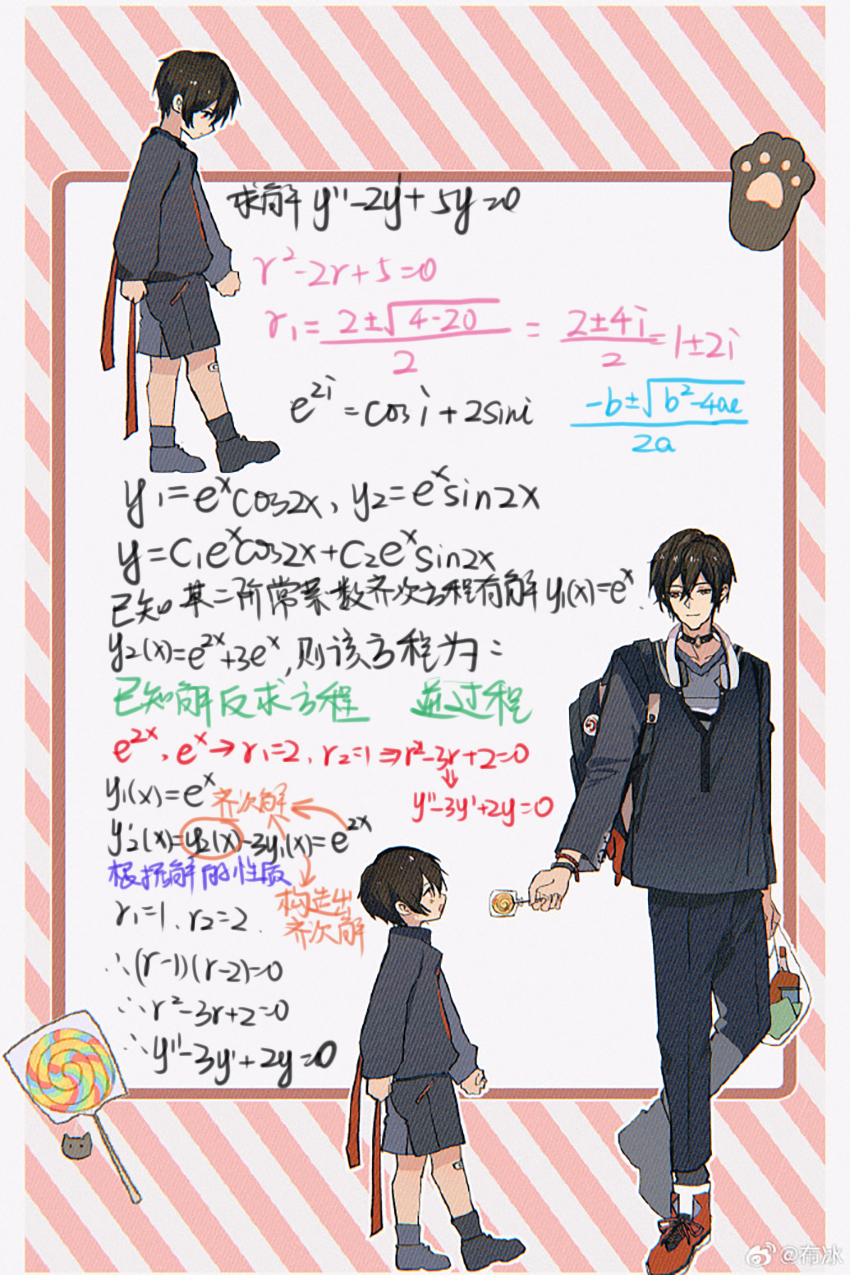 求解 y''-2y'+5y=0
r²-2r+5=0
r₁=(2±√(4-20))/2 = (2±4i)/2 = 1±2i
e^{2i}=cos i+2sini
(-b±√(b²-4ac))/2a
y₁=e^x cos2x, y₂=e^x sin2x
y=C₁e^x cos2x+C₂e^x sin2x
已知某二阶常系数齐次方程有解 y₁(x)=e^x.
y₂(x)=e^{2x}+3e^x,则该方程为:
已知解反求方程 逆过程
e^{2x}, e^x→r₁=2, r₂=1⇒r²-3r+2=0
⇓
y''-3y'+2y=0
y₁(x)=e^x 齐次解
y₂'(x)=y₂(x)-3y₁(x)=e^{2x}
根据解的性质
构造出
齐次解
r₁=1, r₂=2.
∴(r-1)(r-2)=0
∴r²-3r+2=0
∴y''-3y'+2y=0
@布冰